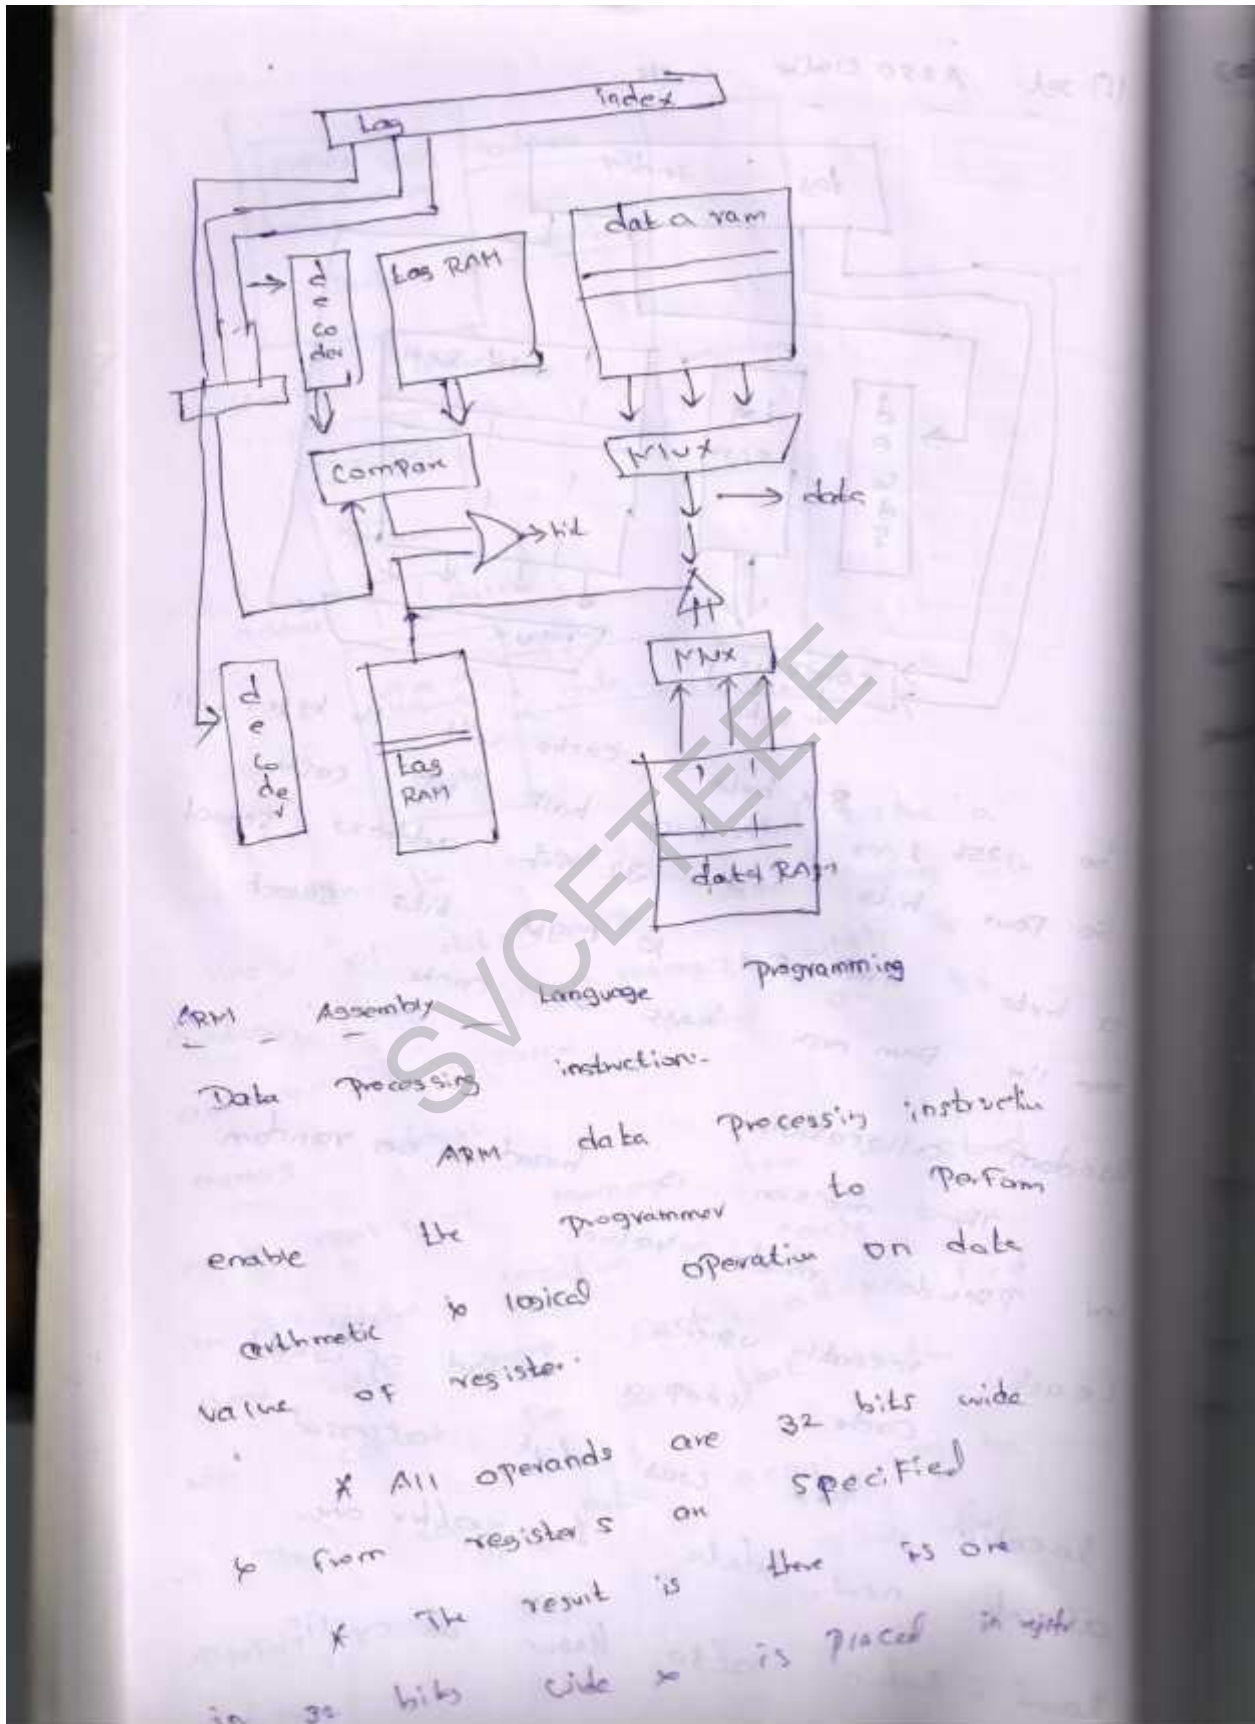 index
tag
data ram
tag RAM
decoder
compare
MUX
data
hit
MUX
decoder
tag
RAM
data RAM
SVCETEEE
ARM Assembly Language Programming
Data Processing instruction:-
ARM data processing instruction
enable the programmer to perform
arithmetic & logical operation on data
value of register.
* All operands are 32 bits wide
& from registers on specified
* The result is there is one
in 32 bits wide & is placed in